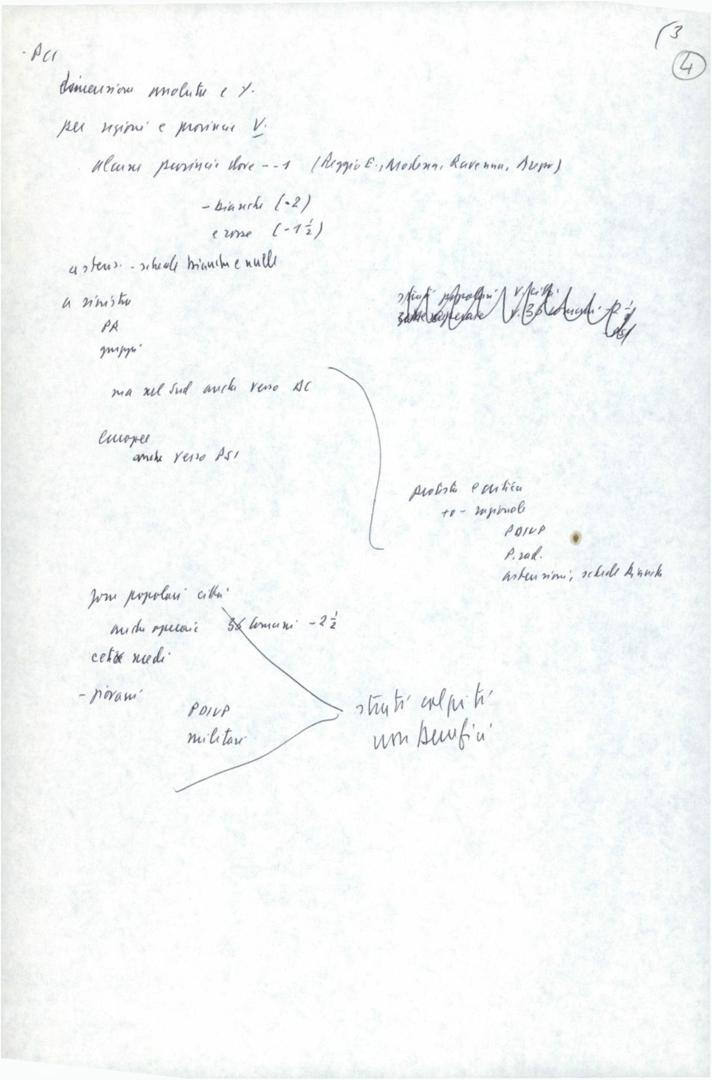 (3
4
- PCI
dimensione assoluta e %.
per regioni e provincie V.
alcune provincie dove -- 1 (Reggio E., Modena, Ravenna,
- bianche (-2)
e rosse (-1½)
astens. - schede bianche e nulle
a sinistra
PR
gruppi
ma nel Sud anche verso DC
Europee
anche verso PSI
protesta e critica
+ o - razionale
PDUP
P. rad.
astensioni, schede bianche
zone popolari città
anche operaie comuni - 2½
ceti medi
- giovani
PDUP
militari
strati colpiti
non benefici